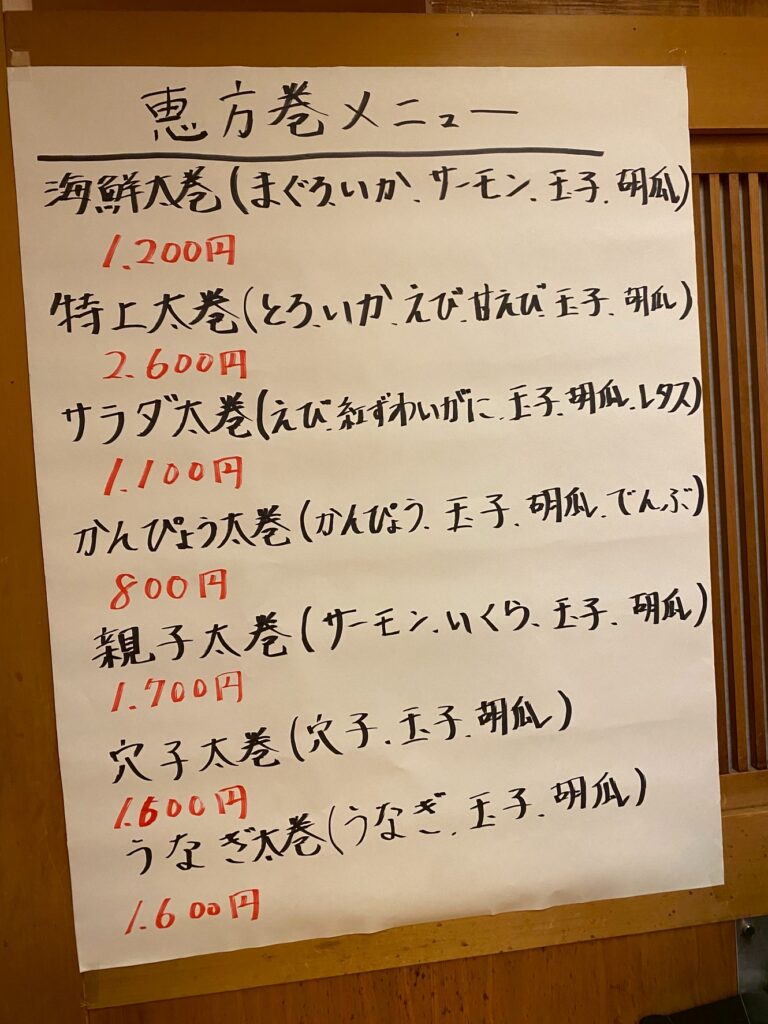 恵方巻メニュー
海鮮太巻(まぐろ、いか、サーモン、玉子、胡瓜)
1.200円
特上太巻(とろ、いか、えび、甘えび、玉子、胡瓜)
2.600円
サラダ太巻(えび、紅ずわいがに、玉子、胡瓜、レタス)
1.100円
かんぴょう太巻(かんぴょう、玉子、胡瓜、でんぶ)
800円
親子太巻(サーモン、いくら、玉子、胡瓜)
1.700円
穴子太巻(穴子、玉子、胡瓜)
1.600円
うなぎ太巻(うなぎ、玉子、胡瓜)
1.600円